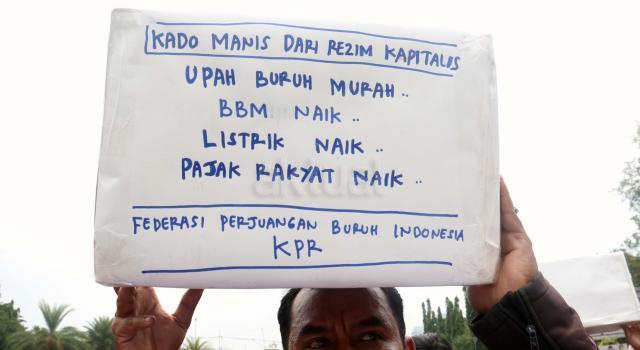 KADO MANIS DARI REZIM KAPITALIS
UPAH BURUH MURAH..
BBM NAIK..
LISTRIK NAIK..
PAJAK RAKYAT NAIK..
aktual
FEDERASI PERJUANGAN BURUH INDONESIA
KPR